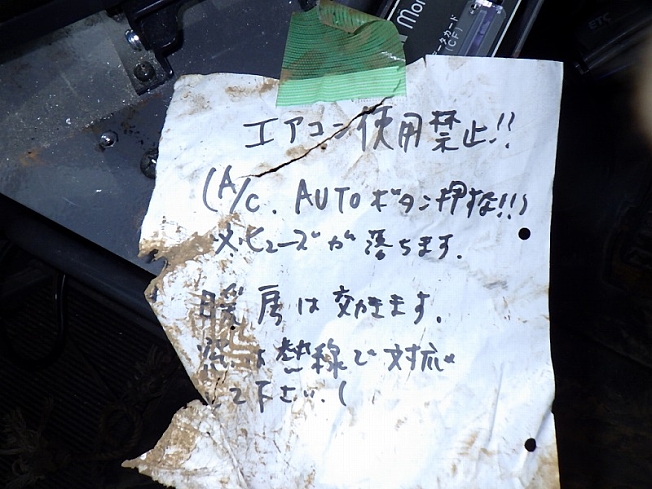 Mo
ータカード
ETC
エアコン使用禁止!!
(A/C. AUTOボタン押すな!!)
※ヒューズが落ちます.
暖房は効きます.
熱線で対応
して下さい.(